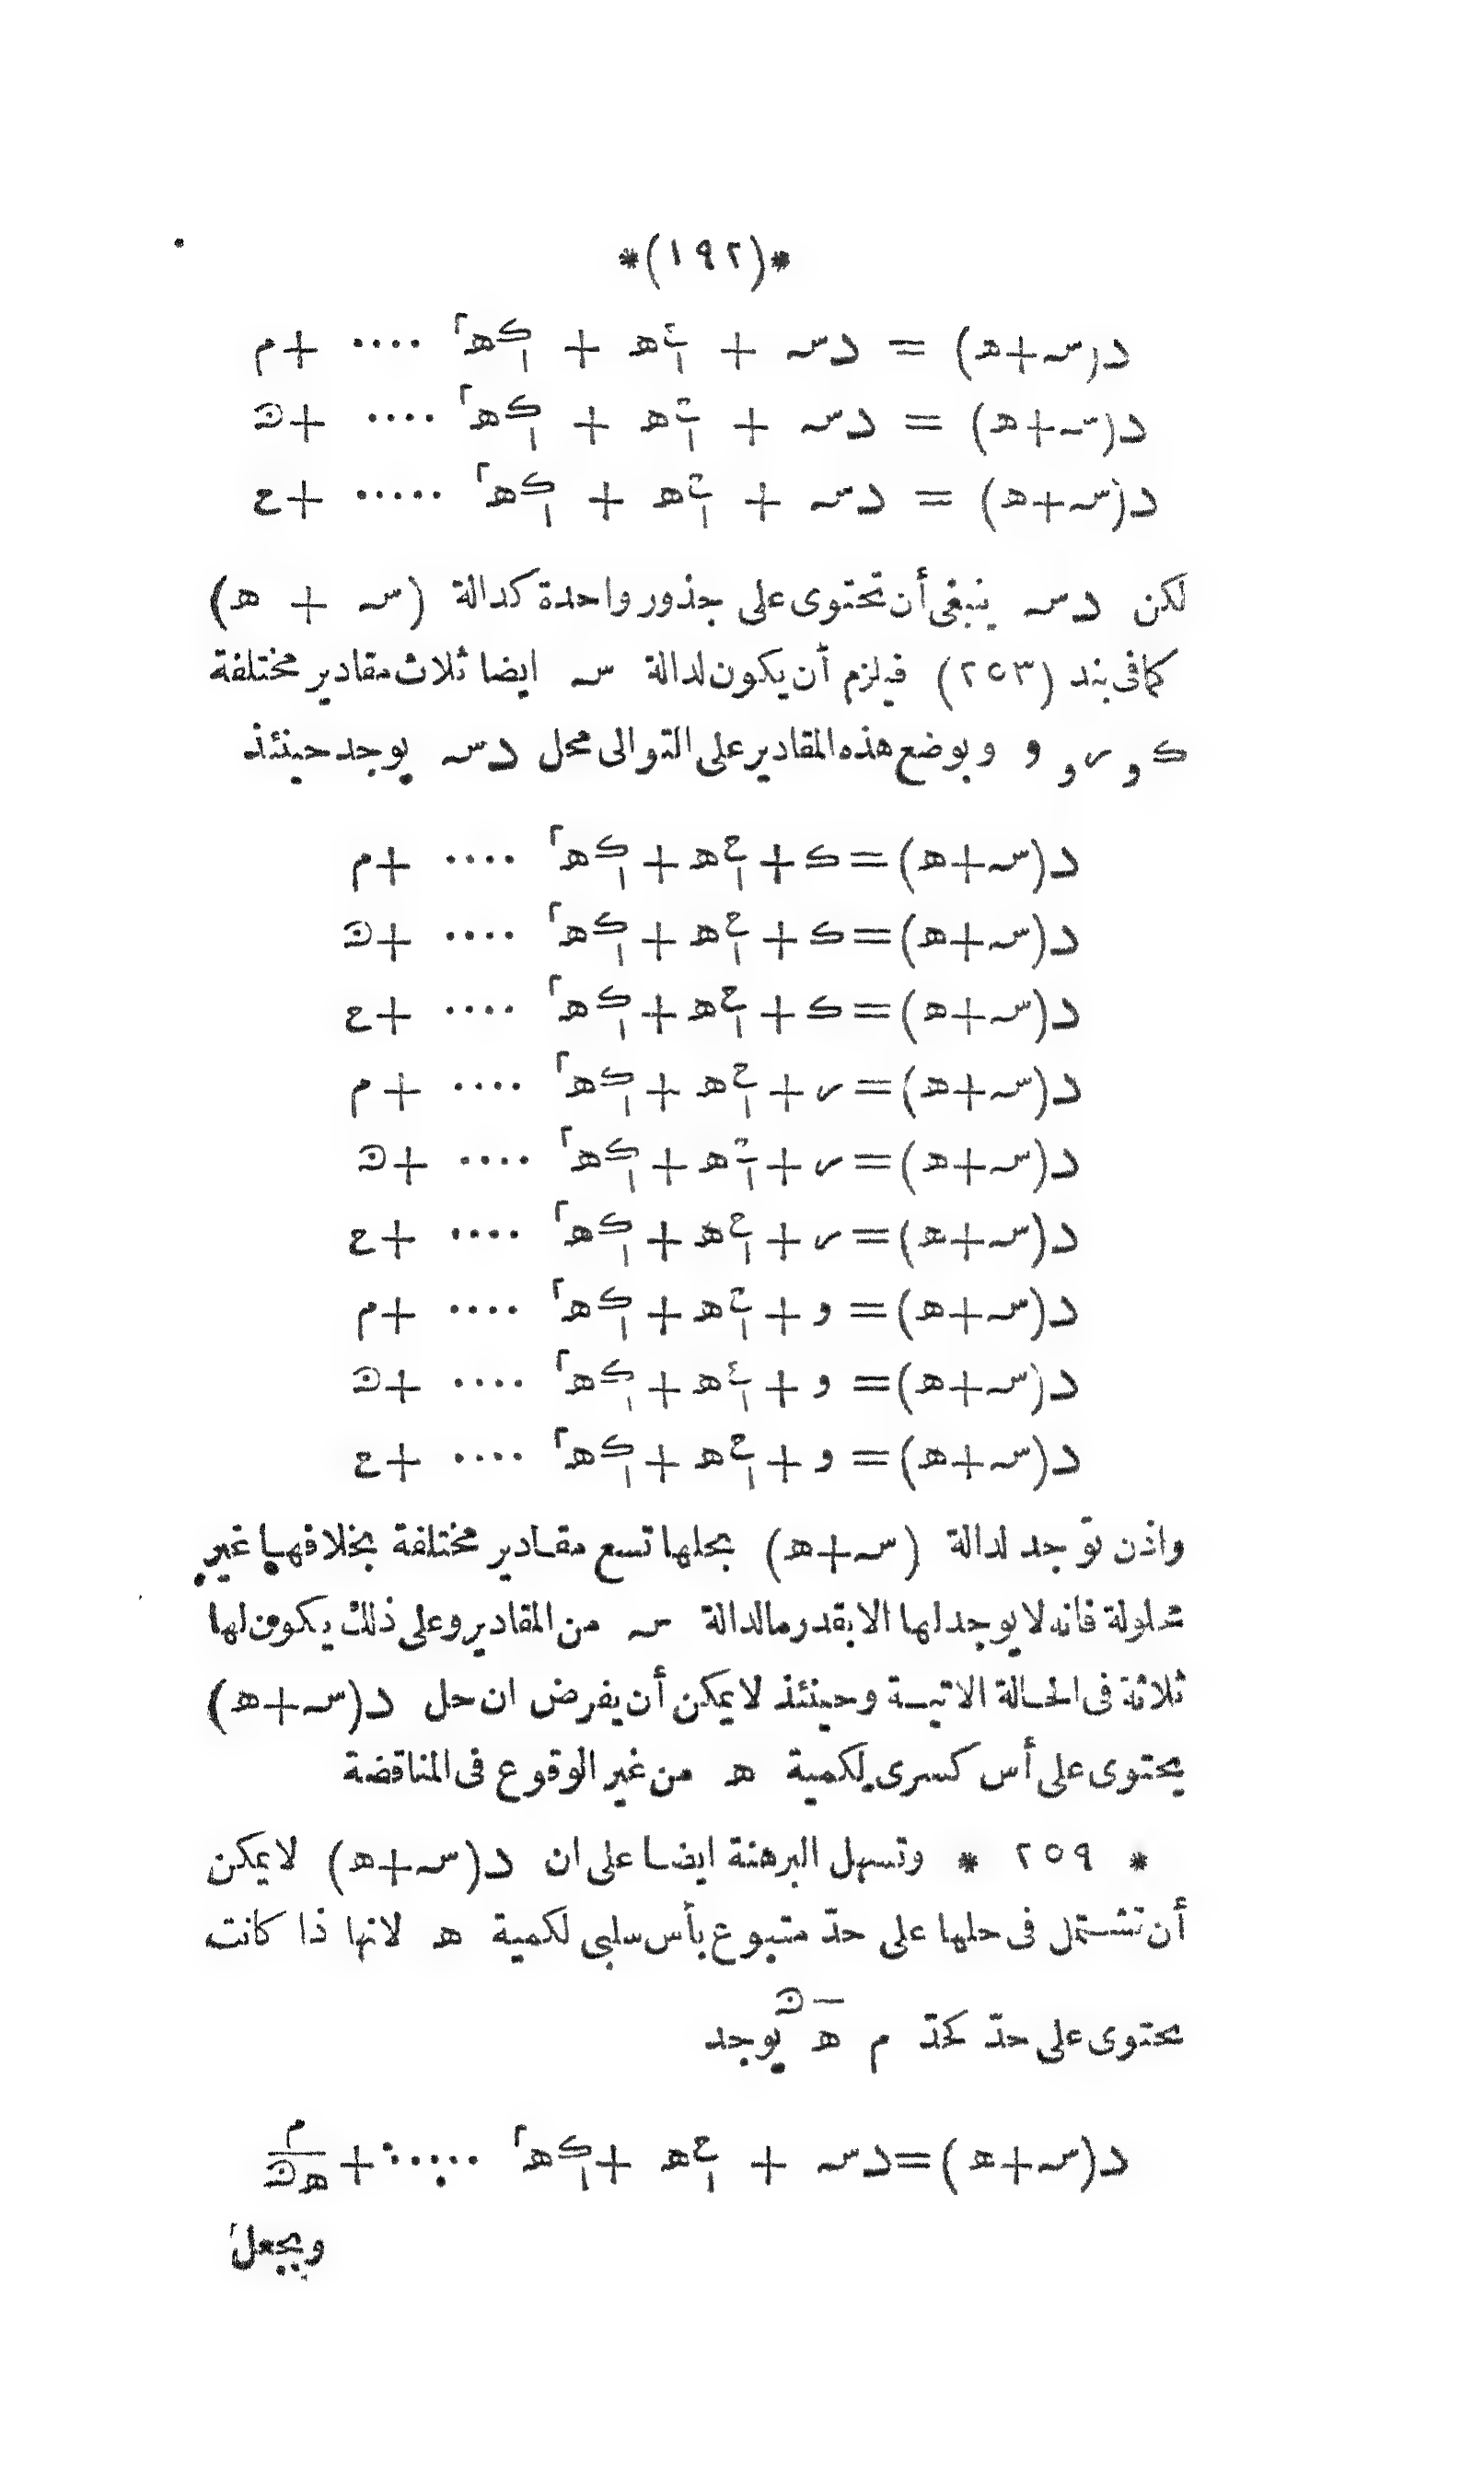 *(١٩٢)*
د(س+ھ) = دس + حـ١ھ + ك١ھ٢ .... +م
د(س+ھ) = دس + حـ١ھ + ك١ھ٢ .... +ن
د(س+ھ) = دس + حـ١ھ + ك١ھ٢ ..... +ع
لكن دس ينبغى أن تحتوى على جذور واحدة كدالة (س + ھ)
كما فى بند (٢٥٣) فيلزم أن يكون لدالة س ايضا ثلاث مقادير مختلفة
ك و ر و و وبوضع هذه المقادير على التوالى محل دس يوجد حينئذ
د(س+ھ)=ك+حـ١ھ+ك١ھ٢ .... +م
د(س+ھ)=ك+حـ١ھ+ك١ھ٢ .... +ن
د(س+ھ)=ك+حـ١ھ+ك١ھ٢ .... +ع
د(س+ھ)=ر+حـ١ھ+ك١ھ٢ .... +م
د(س+ھ)=ر+حـ١ھ+ك١ھ٢ .... +ن
د(س+ھ)=ر+حـ١ھ+ك١ھ٢ .... +ع
د(س+ھ)=و+حـ١ھ+ك١ھ٢ .... +م
د(س+ھ)=و+حـ١ھ+ك١ھ٢ .... +ن
د(س+ھ)=و+حـ١ھ+ك١ھ٢ .... +ع
واذن توجد لدالة (س+ھ) بحلها تسع مقادير مختلفة بخلافها غير
محلولة فانه لا يوجد لها الا بقدر ما لدالة س من المقادير وعلى ذلك يكون لها
ثلاثة فى الحالة الاتية وحينئذ لا يمكن أن يفرض ان حل د(س+ھ)
يحتوى على أس كسرى لكمية ھ من غير الوقوع فى المناقضة
* ٢٥٩ * وتسهل البرهنة ايضا على ان د(س+ھ) لا يمكن
أن تشتمل فى حلها على حدّ متبوع بأس سلبى لكمية ھ لانها ذا كانت
تحتوى على حدّ كحدّ م ھ−ن يوجد
د(س+ھ)=دس + حـ١ھ +ك١ھ٢ .....+ م/ھن
وبجعل